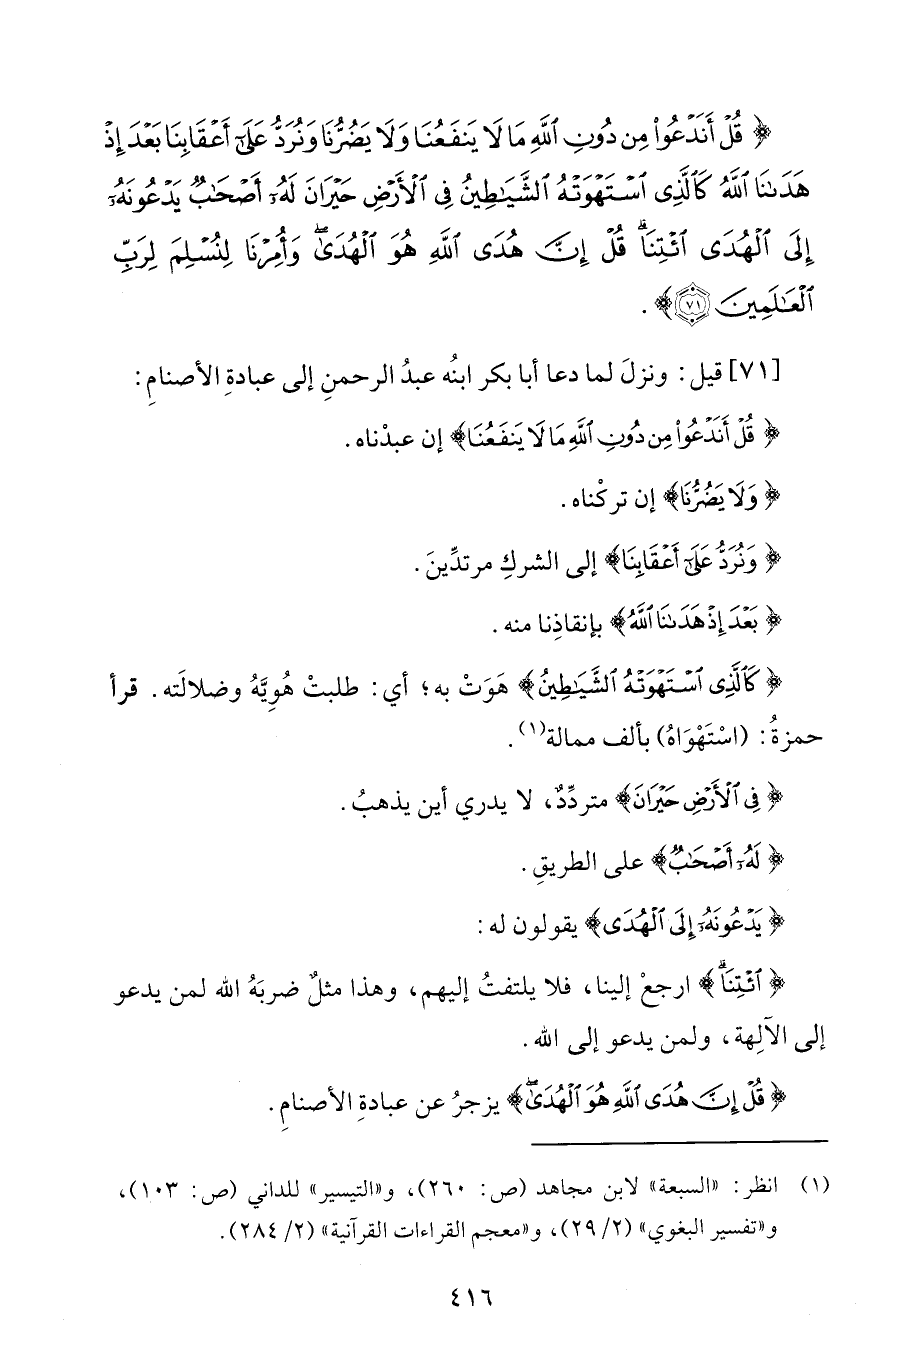 ﴿ قُلْ أَنَدْعُوا۟ مِن دُونِ ٱللَّهِ مَا لَا يَنفَعُنَا وَلَا يَضُرُّنَا وَنُرَدُّ عَلَىٰٓ أَعْقَابِنَا بَعْدَ إِذْ
هَدَىٰنَا ٱللَّهُ كَٱلَّذِى ٱسْتَهْوَتْهُ ٱلشَّيَٰطِينُ فِى ٱلْأَرْضِ حَيْرَانَ لَهُۥٓ أَصْحَٰبٌ يَدْعُونَهُۥٓ
إِلَى ٱلْهُدَى ٱئْتِنَا ۗ قُلْ إِنَّ هُدَى ٱللَّهِ هُوَ ٱلْهُدَىٰ ۖ وَأُمِرْنَا لِنُسْلِمَ لِرَبِّ
ٱلْعَٰلَمِينَ ٧١ ﴾ .
[٧١] قيل: ونزلَ لما دعا أبا بكر ابنُه عبدُ الرحمنِ إلى عبادةِ الأصنامِ:
﴿ قُلْ أَنَدْعُوا۟ مِن دُونِ ٱللَّهِ مَا لَا يَنفَعُنَا ﴾ إن عبدْناه.
﴿ وَلَا يَضُرُّنَا ﴾ إن تركْناه.
﴿ وَنُرَدُّ عَلَىٰٓ أَعْقَابِنَا ﴾ إلى الشركِ مرتدِّينَ.
﴿ بَعْدَ إِذْ هَدَىٰنَا ٱللَّهُ ﴾ بإنقاذِنا منه.
﴿ كَٱلَّذِى ٱسْتَهْوَتْهُ ٱلشَّيَٰطِينُ ﴾ هَوَتْ به؛ أي: طلبتْ هُوِيَّهُ وضلالَته. قرأ
حمزةُ: (اسْتَهْوَاهُ) بألف ممالة(١).
﴿ فِى ٱلْأَرْضِ حَيْرَانَ ﴾ متردِّدٌ، لا يدري أين يذهبُ.
﴿ لَهُۥٓ أَصْحَٰبٌ ﴾ على الطريقِ.
﴿ يَدْعُونَهُۥٓ إِلَى ٱلْهُدَى ﴾ يقولون له:
﴿ ٱئْتِنَا ۗ ﴾ ارجعْ إلينا، فلا يلتفتُ إليهم، وهذا مثلٌ ضربَهُ الله لمن يدعو
إلى الآلِهة، ولمن يدعو إلى الله.
﴿ قُلْ إِنَّ هُدَى ٱللَّهِ هُوَ ٱلْهُدَىٰ ۖ ﴾ يزجرُ عن عبادةِ الأصنامِ.
(١) انظر: «السبعة» لابن مجاهد (ص: ٢٦٠)، و«التيسير» للداني (ص: ١٠٣)،
و«تفسير البغوي» (٢/ ٢٩)، و«معجم القراءات القرآنية» (٢/ ٢٨٤).
٤١٦